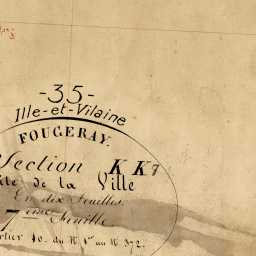 -35-
Ille-et-Vilaine
FOUGERAY.
Section K K7
de la Ville
En dix Feuilles.
7eme Feuille
10. du N° 1er au N° 372.